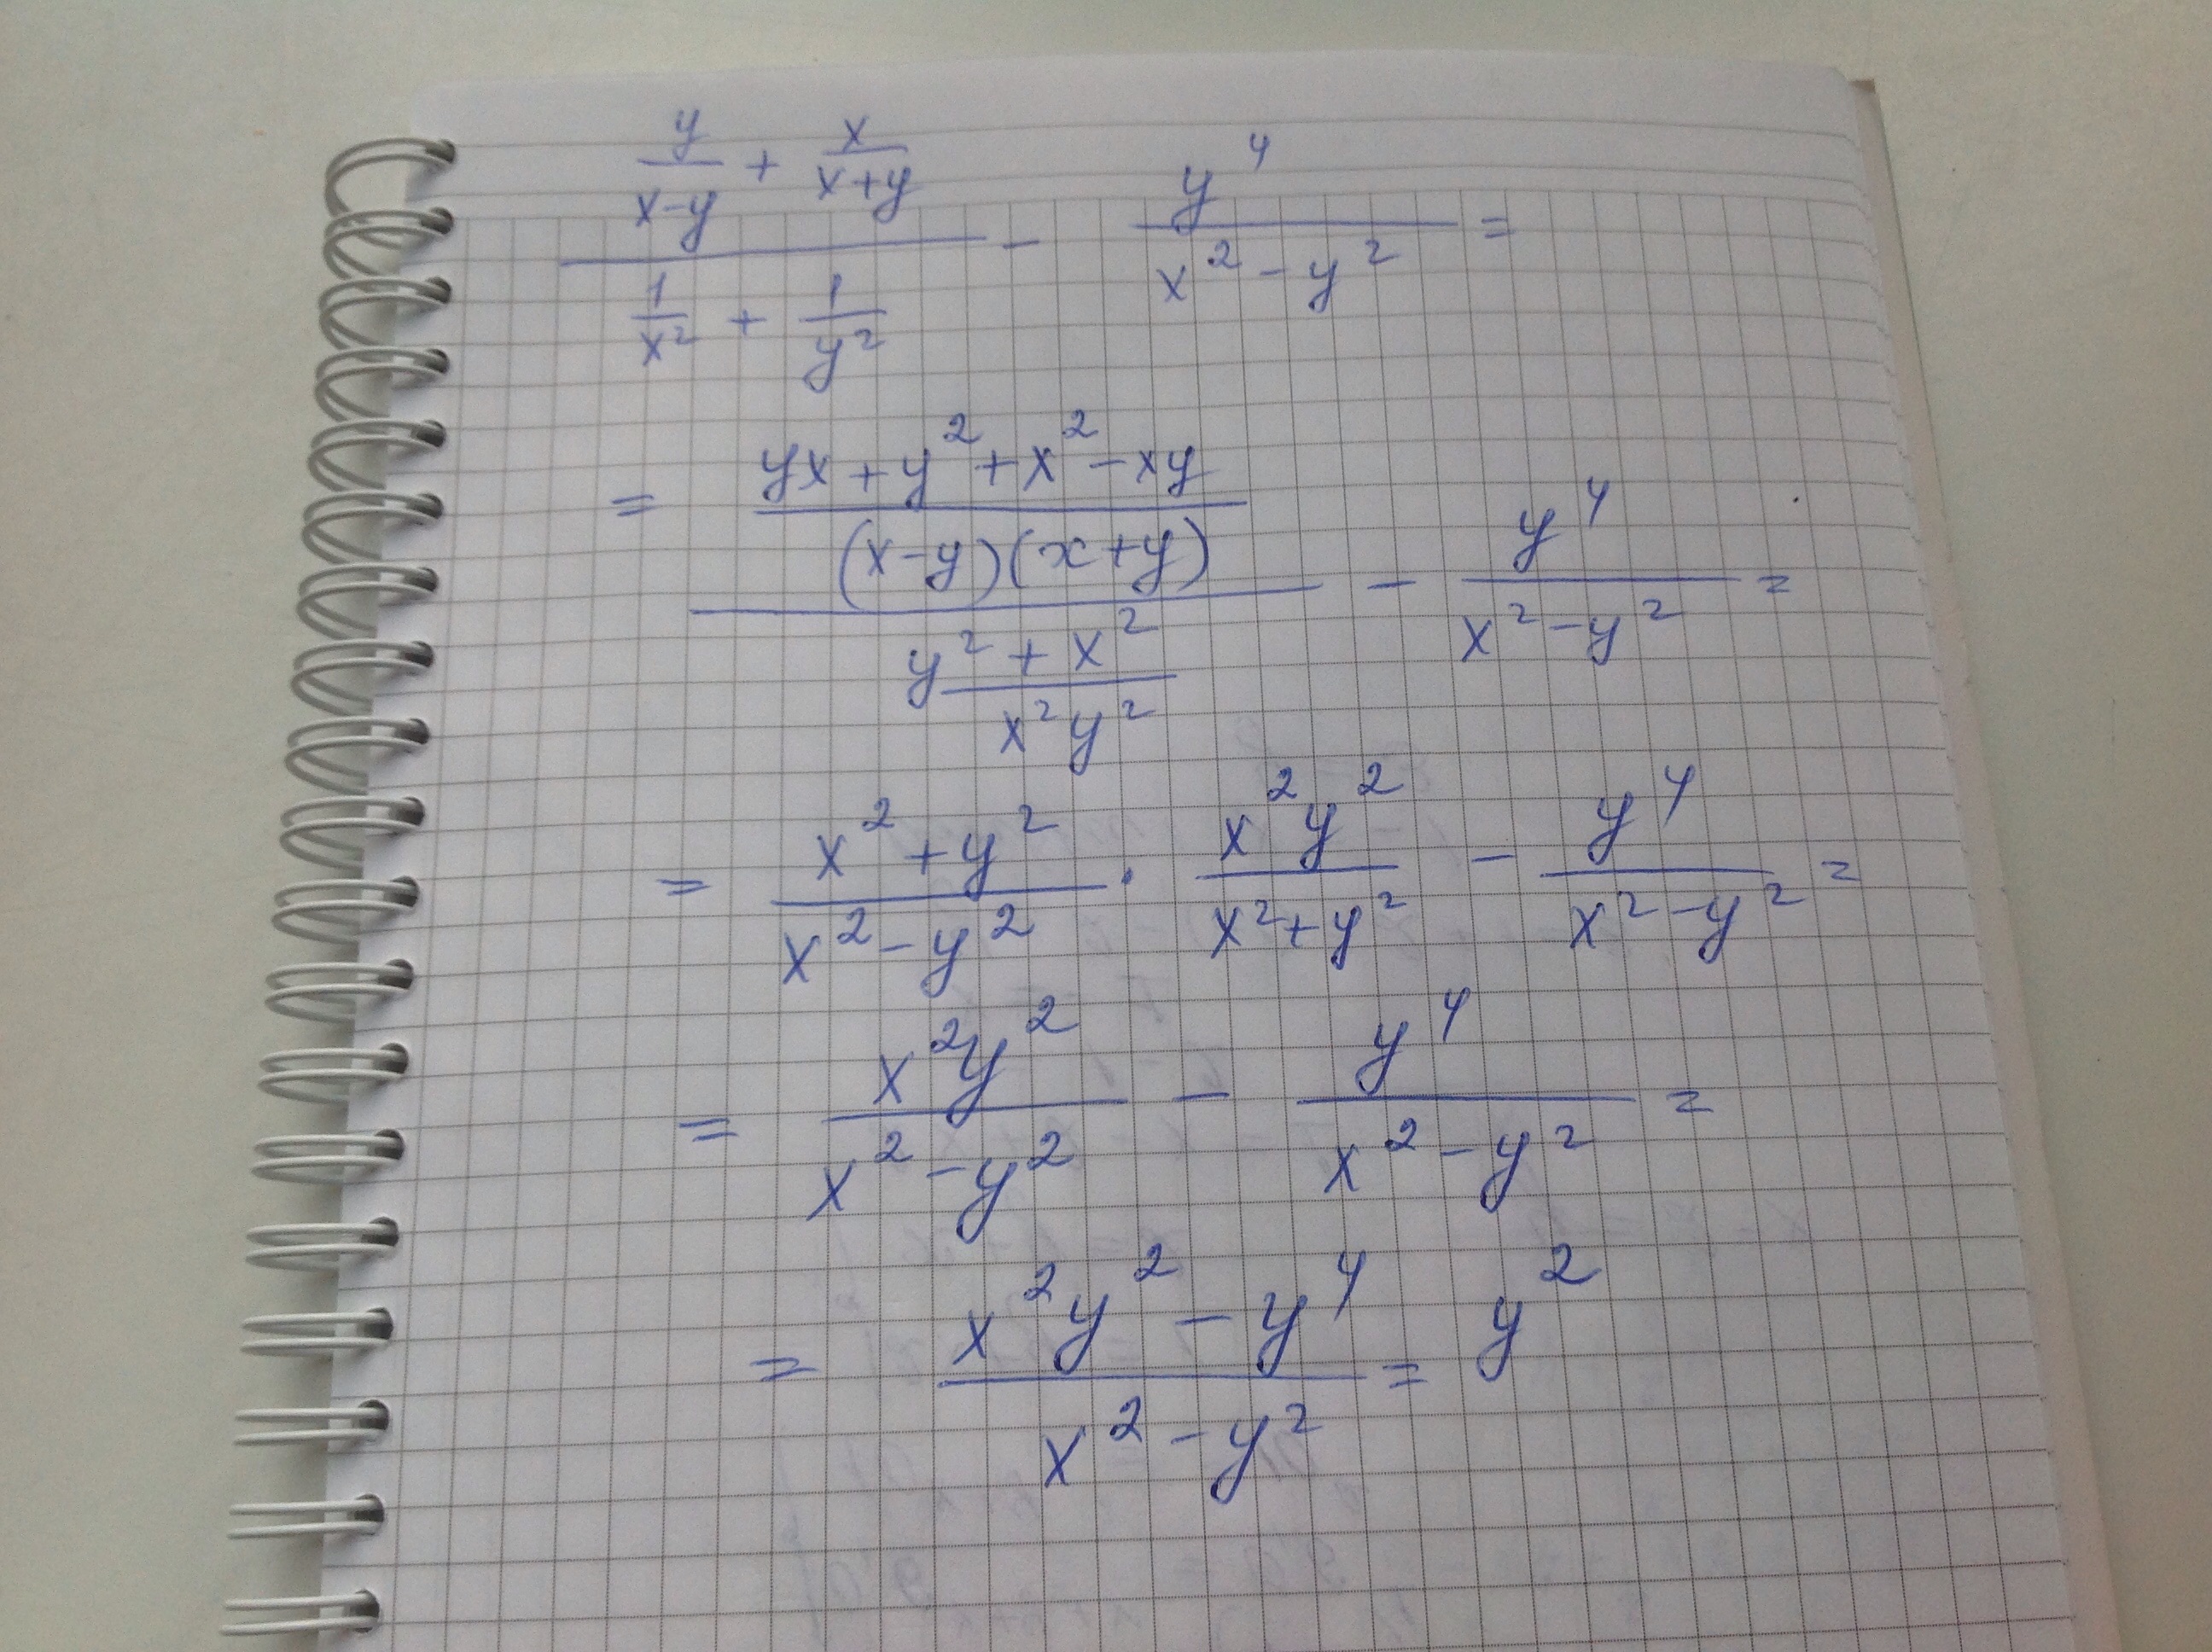 \frac{\frac{y}{x-y} + \frac{x}{x+y}}{\frac{1}{x^2} + \frac{1}{y^2}} - \frac{y^4}{x^2-y^2} =
= \frac{\frac{yx+y^2+x^2-xy}{(x-y)(x+y)}}{\frac{y^2+x^2}{x^2y^2}} - \frac{y^4}{x^2-y^2} =
= \frac{x^2+y^2}{x^2-y^2} \cdot \frac{x^2y^2}{x^2+y^2} - \frac{y^4}{x^2-y^2} =
= \frac{x^2y^2}{x^2-y^2} - \frac{y^4}{x^2-y^2} =
= \frac{x^2y^2-y^4}{x^2-y^2} = y^2